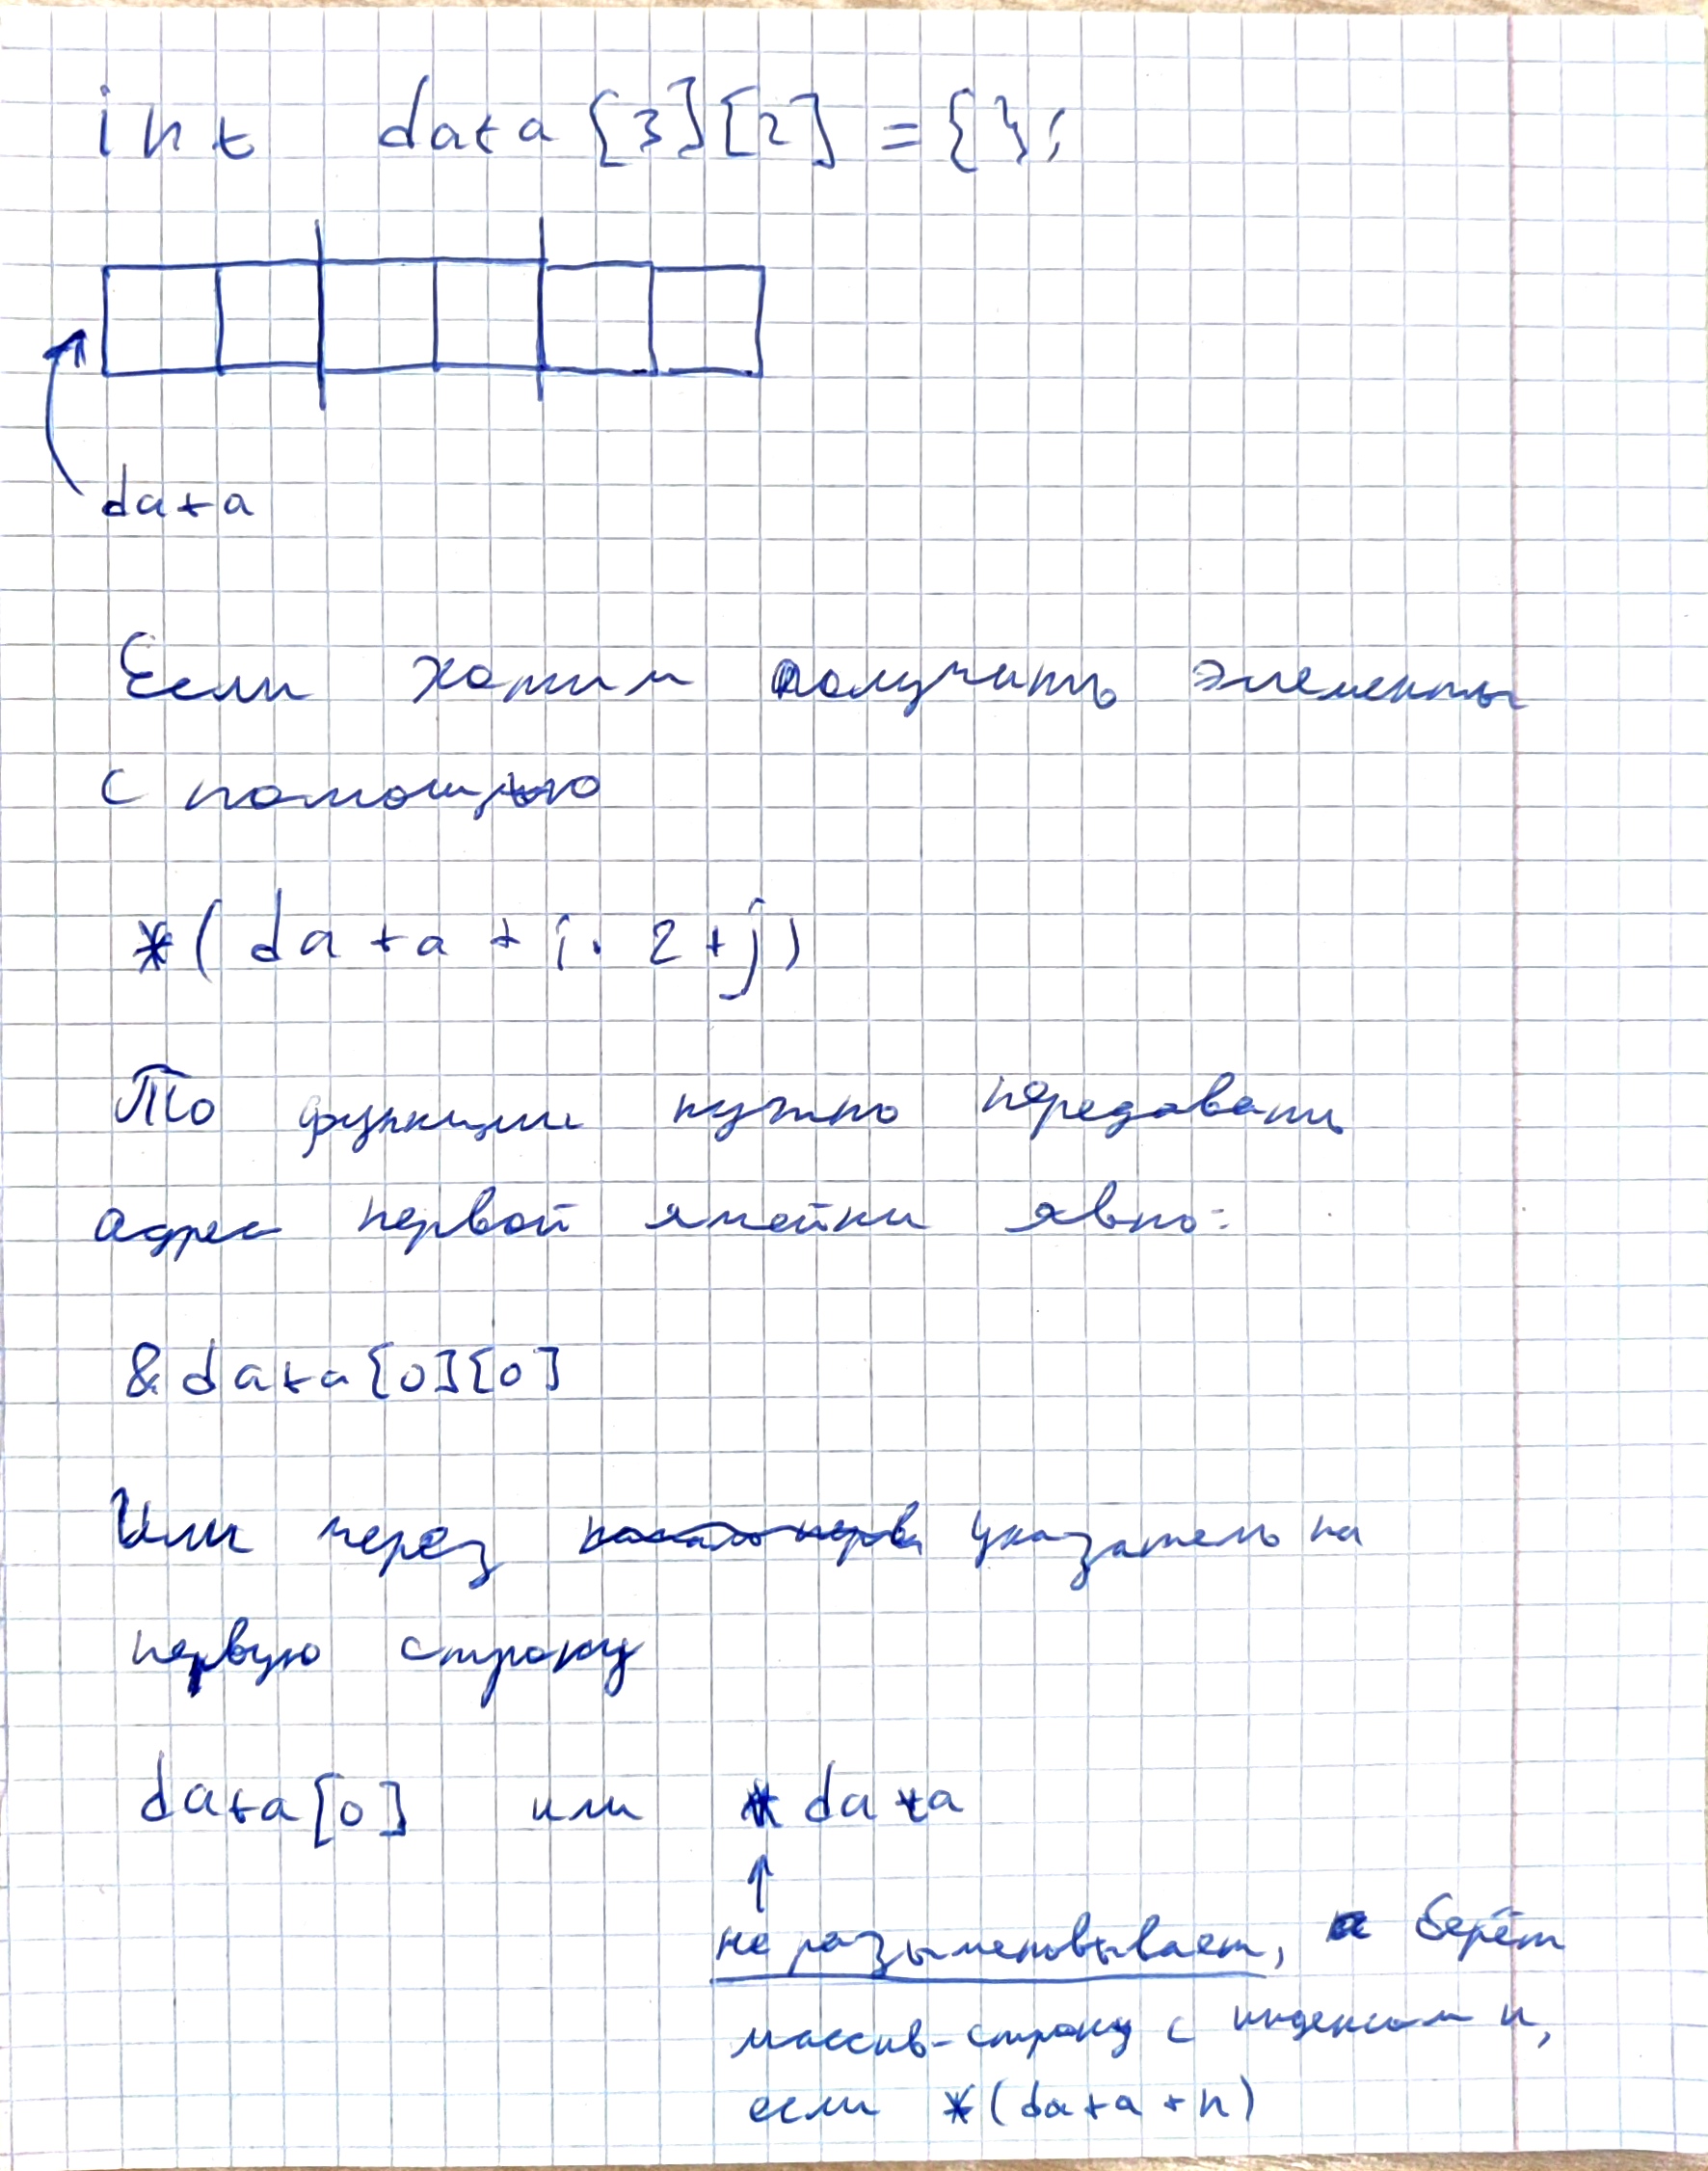 int data[3][2] = {};
data
Если хотим получить элементы
с помощью
*(data + i · 2 + j)
То функции нужно передавать
адрес первой ячейки явно:
&data[0][0]
Или через указатель на
первую строку
data[0] или *data
не разыменовывает, а берёт
массив-строку с индексом n,
если *(data + n)